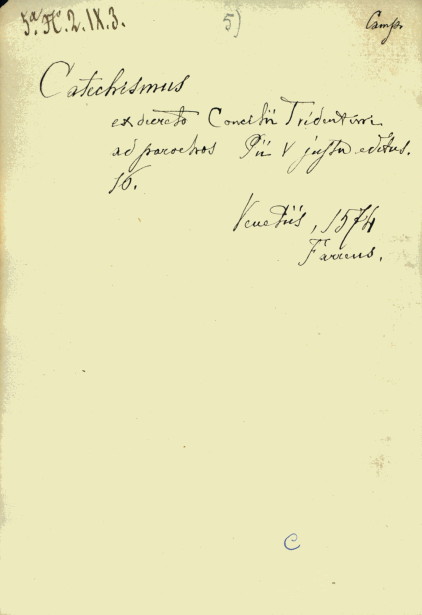 5ª.H.2.IX.3.
5)
Camp.
Catechismus
ex decreto Concilii Tridentini
ad parochos Pii V jussu editus.
16.
Venetiis, 1574
Farreus.
C